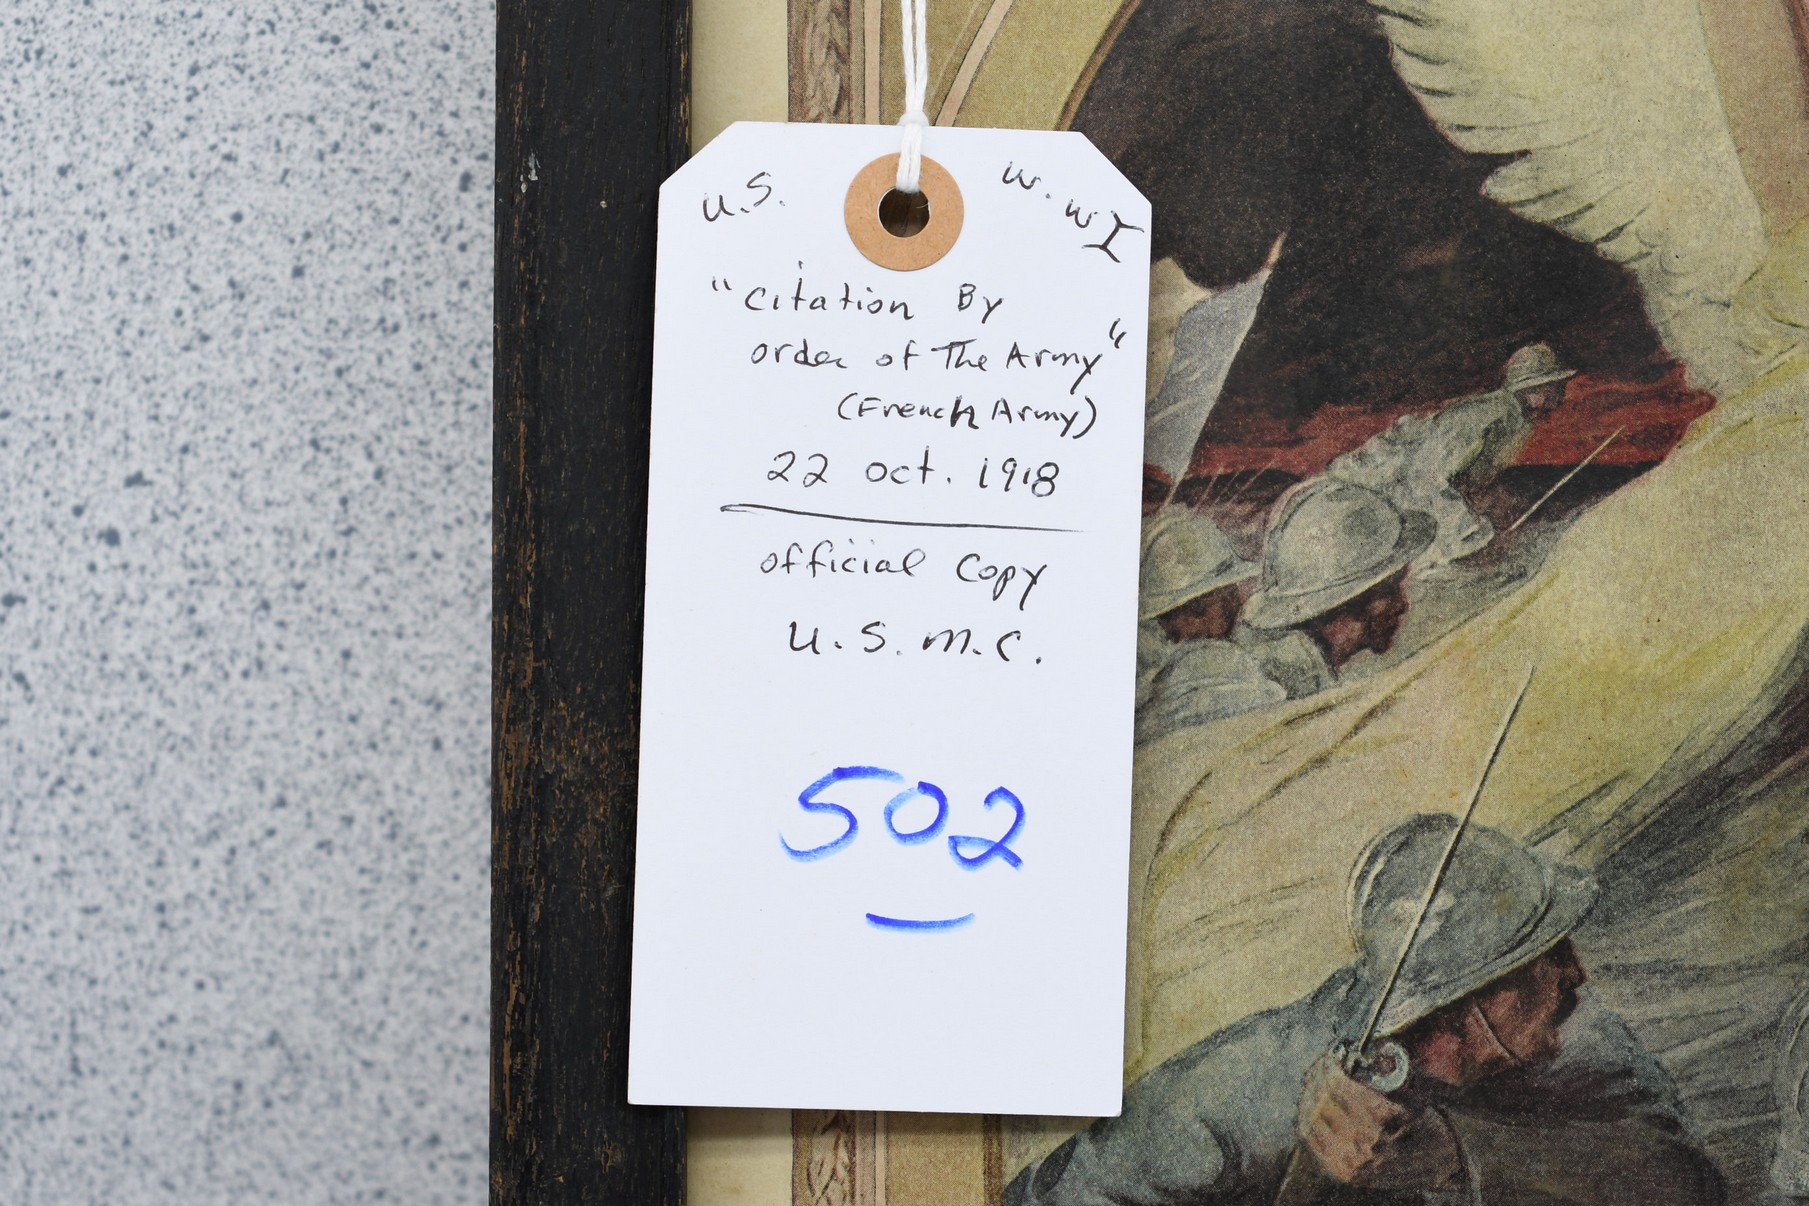 U.S. W.WI
"Citation By
order of The Army"
(French Army)
22 oct. 1918
official Copy
U.S.M.C.
502